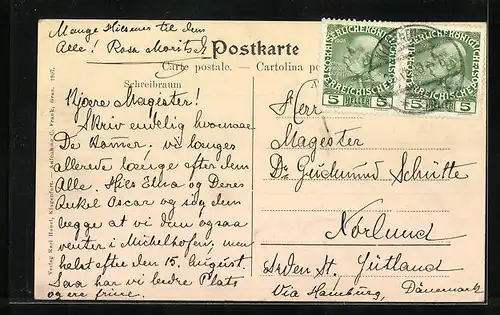 Mange Hilsener til dem
Alle! Rosa Moritz
Postkarte
Carte postale. — Cartolina po
Schreibraum
Kjære Magister!
Skriv endelig hvornaar
De kommer. vi længes
allerede længe efter dem
Alle. Hils Elna og Deres
Onkel Oscar og sig dem
begge at vi dem ogsaa
venter i Michelhofen, men
helst efter den 15. August.
Saa har vi bedre Plats
og ere frine.
Verlag Karl Hassel, Klagenfurt. Aufnahme C. Frankl, Graz. 1907.
KAISERLICHE KÖNIGL
ÖSTERREICHISCHE
5 HELLER 5
KAISERLICHE KÖNIGL
ÖSTERREICHISCHE
5 HELLER 5
Herr
Magester
Dr Gudmund Schütte
Nörlund
Arden St. Jütland
Via Hamburg, Dänemark